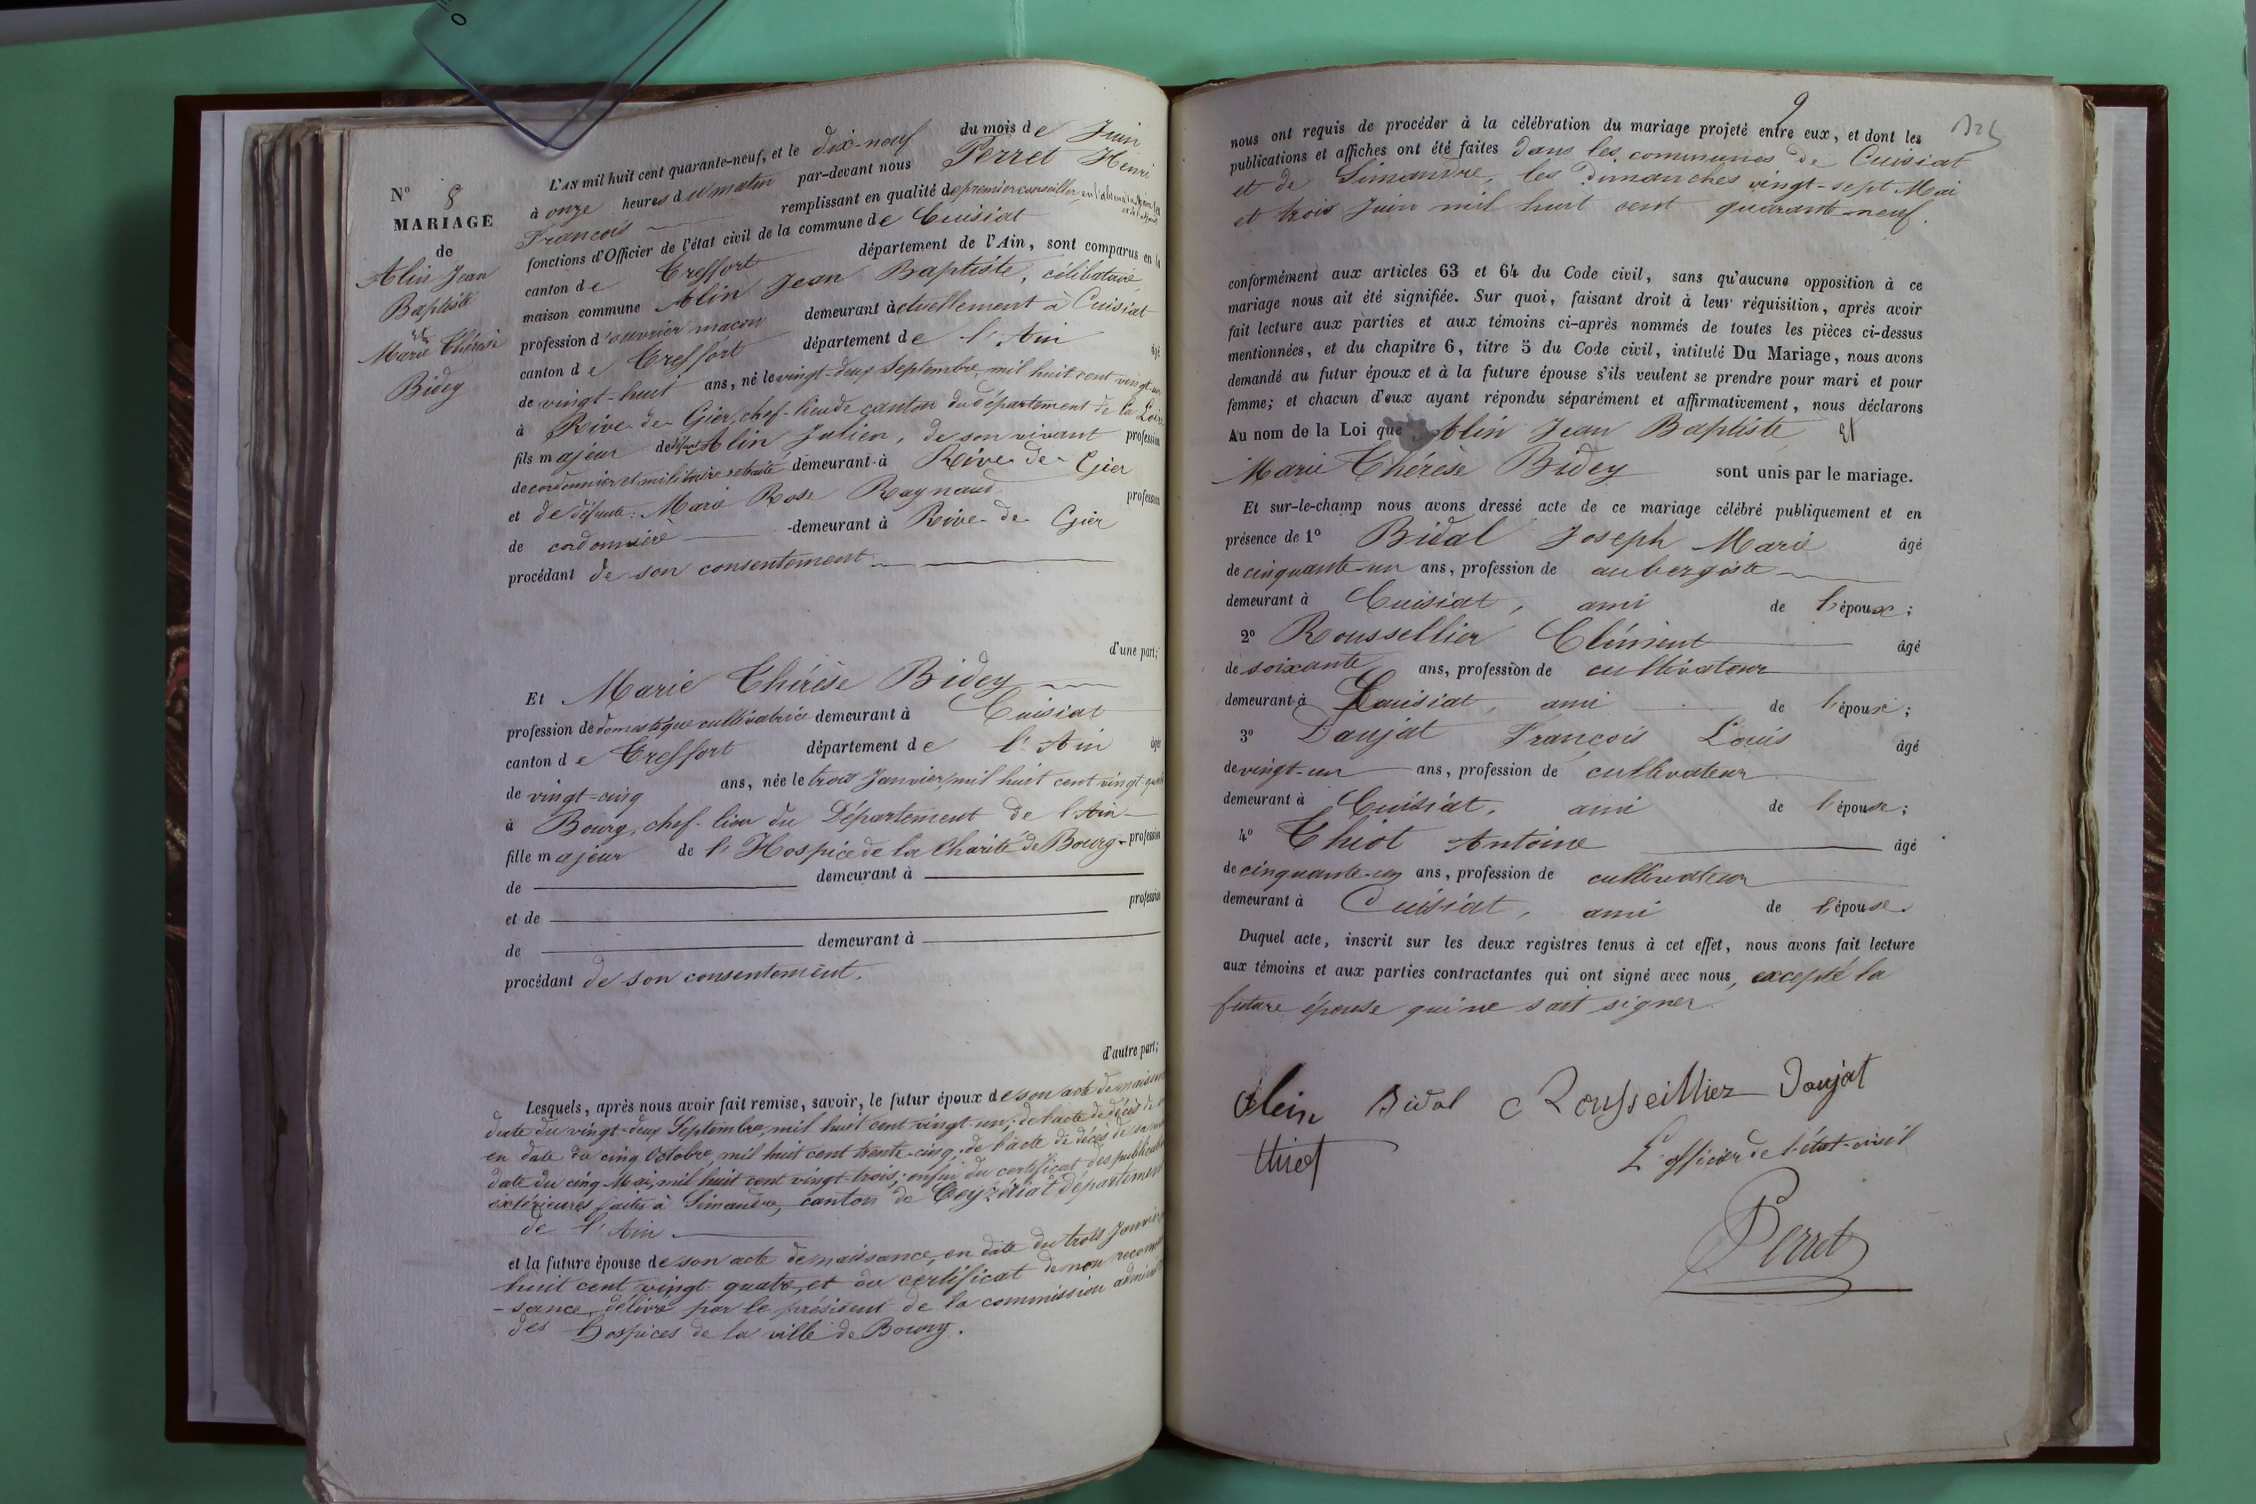 N° 8
MARIAGE
de
Alin Jean
Baptiste
et
Marie Thérèse
Bidey
L'AN mil huit cent quarante-neuf, et le dix-neuf du mois de Juin
à onze heures du matin par-devant nous Perret Henri
François remplissant en qualité de premier conseiller,
fonctions d'Officier de l'état civil de la commune de Cuisiat
canton de Treffort département de l'Ain, sont comparus en la
maison commune Alin Jean Baptiste, célibataire
profession d'ouvrier maçon demeurant actuellement à Cuisiat
canton de Treffort département de l'Ain âgé
de vingt-huit ans, né le vingt-deux Septembre mil huit cent vingt-un
à Rive-de-Gier, chef-lieu de canton du département de la Loire
fils majeur de défunt Alin Julien, de son vivant profession
de cordonnier et militaire retraité demeurant à Rive-de-Gier
et de défunte Marie Rose Raynaud profession
de cordonnière demeurant à Rive-de-Gier
procédant de son consentement
d'une part;
Et Marie Thérèse Bidey
profession de domestique cultivatrice demeurant à Cuisiat
canton de Treffort département de l'Ain âgée
de vingt-cinq ans, née le trois Janvier mil huit cent vingt-quatre
à Bourg, chef-lieu du Département de l'Ain
fille majeur de l'Hospice de la Charité de Bourg profession
de demeurant à
et de profession
de demeurant à
procédant de son consentement.
d'autre part;
Lesquels, après nous avoir fait remise, savoir, le futur époux de son acte de naissance
date du vingt-deux Septembre, mil huit cent vingt-un; de l'acte de décès de
en date du cinq Octobre, mil huit cent trente-cinq; de l'acte de décès de sa
date du cinq Mai, mil huit cent vingt-trois; enfin du certificat des publications
extérieures faites à Simandre, canton de Ceyzériat département
de l'Ain
et la future épouse de son acte de naissance, en date du trois Janvier
huit cent vingt quatre, et du certificat de non reconnais
-sance, délivré par le président de la commission
des hospices de la ville de Bourg.
9
nous ont requis de procéder à la célébration du mariage projeté entre eux, et dont les
publications et affiches ont été faites dans les communes de Cuisiat
et de Simandre, les Dimanches vingt-sept Mai
et trois Juin mil huit cent quarante-neuf.
conformément aux articles 63 et 64 du Code civil, sans qu'aucune opposition à ce
mariage nous ait été signifiée. Sur quoi, faisant droit à leur réquisition, après avoir
fait lecture aux parties et aux témoins ci-après nommés de toutes les pièces ci-dessus
mentionnées, et du chapitre 6, titre 5 du Code civil, intitulé Du Mariage, nous avons
demandé au futur époux et à la future épouse s'ils veulent se prendre pour mari et pour
femme; et chacun d'eux ayant répondu séparément et affirmativement, nous déclarons
Au nom de la Loi que Alin Jean Baptiste et
Marie Thérèse Bidey sont unis par le mariage.
Et sur-le-champ nous avons dressé acte de ce mariage célébré publiquement et en
présence de 1° Bidal Joseph Marie âgé
de cinquante-un ans, profession de aubergiste
demeurant à Cuisiat, ami de l'époux;
2° Roussellier Clément âgé
de soixante ans, profession de cultivateur
demeurant à Cuisiat, ami de l'épouse;
3° Daujat François Louis âgé
de vingt-un ans, profession de cultivateur
demeurant à Cuisiat, ami de l'épouse;
4° Thiot Antoine âgé
de cinquante-un ans, profession de cultivateur
demeurant à Cuisiat, ami de l'épouse.
Duquel acte, inscrit sur les deux registres tenus à cet effet, nous avons fait lecture
aux témoins et aux parties contractantes qui ont signé avec nous, excepté la
future épouse qui ne sait signer.
Alein Bidal Rousseillier Doujat
thiot
L'officier de l'état-civil
Perret